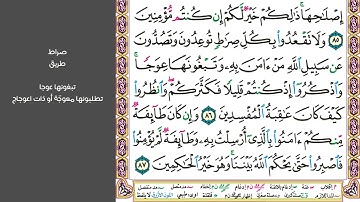 إِصْلَٰحِهَا ذَٰلِكُمْ خَيْرٌ لَّكُمْ إِن كُنتُم مُّؤْمِنِينَ
٨٥ وَلَا تَقْعُدُوا۟ بِكُلِّ صِرَٰطٍ تُوعِدُونَ وَتَصُدُّونَ
عَن سَبِيلِ ٱللَّهِ مَنْ ءَامَنَ بِهِۦ وَتَبْغُونَهَا عِوَجًا
وَٱذْكُرُوٓا۟ إِذْ كُنتُمْ قَلِيلًا فَكَثَّرَكُمْ وَٱنظُرُوا۟
كَيْفَ كَانَ عَٰقِبَةُ ٱلْمُفْسِدِينَ ٨٦ وَإِن كَانَ طَآئِفَةٌ
مِّنكُمْ ءَامَنُوا۟ بِٱلَّذِىٓ أُرْسِلْتُ بِهِۦ وَطَآئِفَةٌ لَّمْ يُؤْمِنُوا۟
فَٱصْبِرُوا۟ حَتَّىٰ يَحْكُمَ ٱللَّهُ بَيْنَنَا وَهُوَ خَيْرُ ٱلْحَٰكِمِينَ ٨٧
صراط
طريق
تبغونها عوجا
تطلبونها معوجّة أو ذات اعوجاج